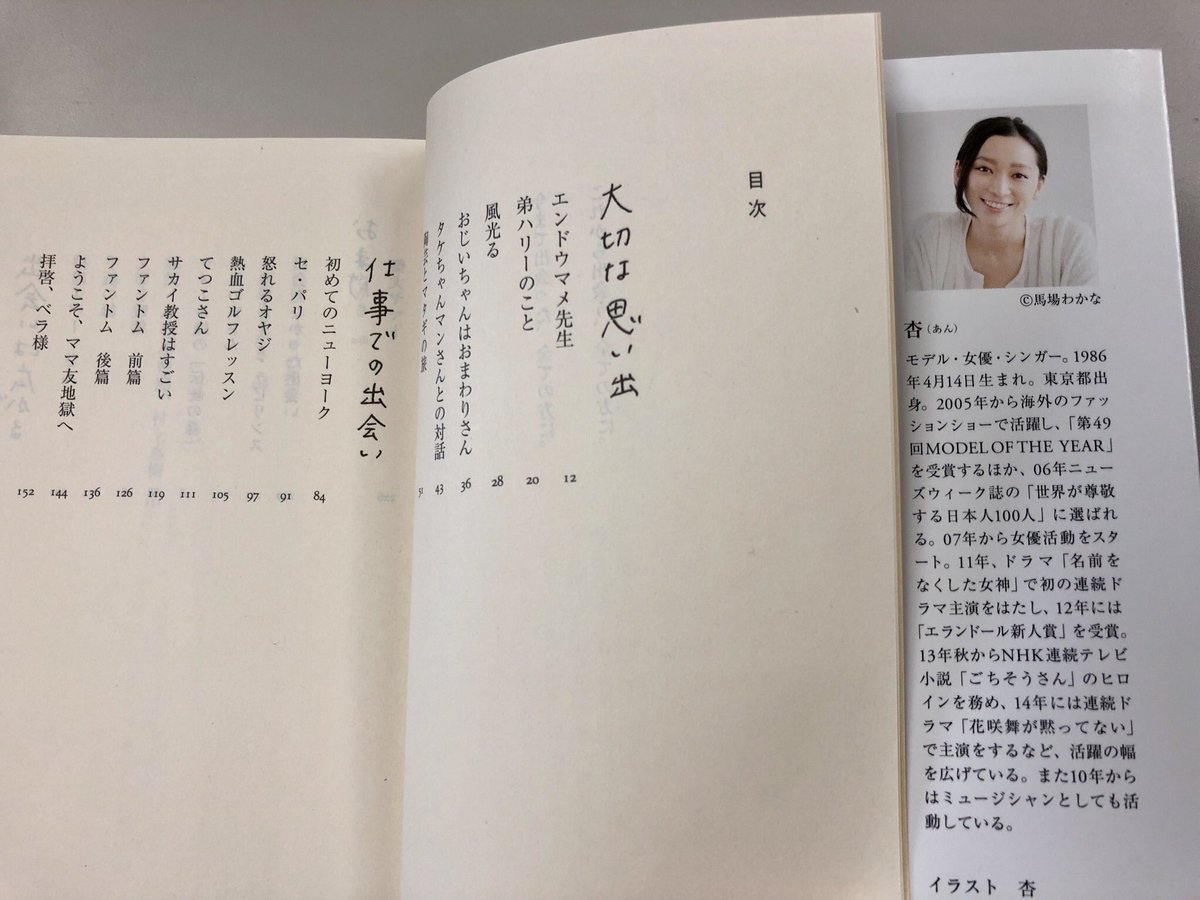 目次
大切な思い出
エンドウマメ先生 12
弟ハリーのこと 20
風光る 28
おじいちゃんはおまわりさん 36
タケちゃんマンさんとの対話 43
とマタギの旅 51
仕事での出会い
初めてのニューヨーク 84
セ・パリ 91
怒れるオヤジ 97
熱血ゴルフレッスン 105
てつこさん 111
サカイ教授はすごい 119
ファントム 前篇 126
ファントム 後篇 136
ようこそ、ママ友地獄へ 144
拝啓、ベラ様 152
©馬場わかな
杏(あん)
モデル・女優・シンガー。1986
年4月14日生まれ。東京都出
身。2005年から海外のファッ
ションショーで活躍し、「第49
回MODEL OF THE YEAR」
を受賞するほか、06年ニュー
ズウィーク誌の「世界が尊敬
する日本人100人」に選ばれ
る。07年から女優活動をスタ
ート。11年、ドラマ「名前を
なくした女神」で初の連続ド
ラマ主演をはたし、12年には
「エランドール新人賞」を受賞。
13年秋からNHK連続テレビ
小説「ごちそうさん」のヒロ
インを務め、14年には連続ド
ラマ「花咲舞が黙ってない」
で主演をするなど、活躍の幅
を広げている。また10年から
はミュージシャンとしても活
動している。
イラスト 杏